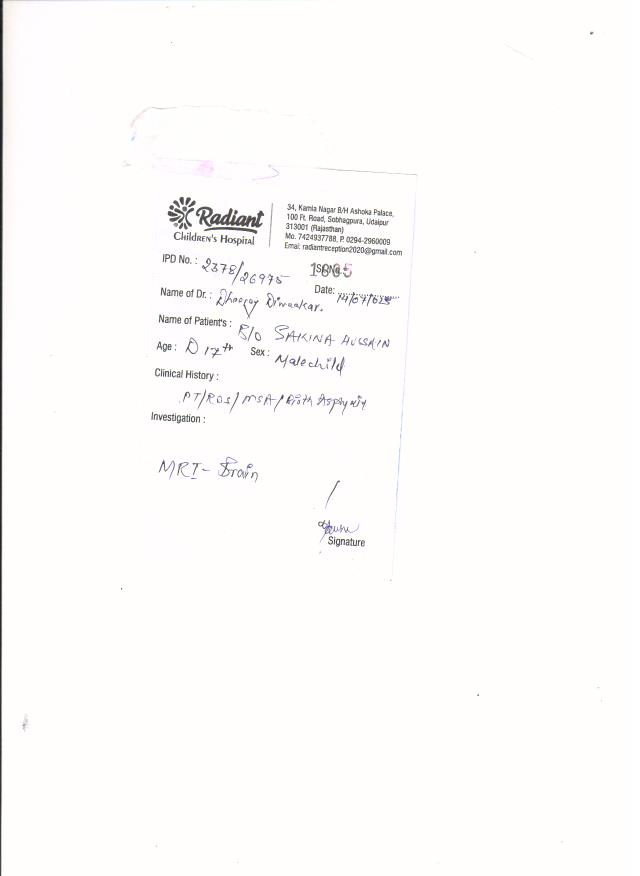 Radiant
Children's Hospital
34, Kamla Nagar B/H Ashoka Palace,
100 Ft. Road, Sobhagpura, Udaipur
313001 (Rajasthan)
Mo. 7424937788, P. 0294-2960009
Emai: radiantreception2020@gmail.com
IPD No. : 2378/26975
1665
Date:
Name of Dr. : Dheeraj Diwakar.
Name of Patient's : B/O SAKINA HUSSAIN
Age : D 17th Sex : Male child
Clinical History :
PT/RDS/MSA/Birth Asphyxia
Investigation :
MRI- Brain
Signature